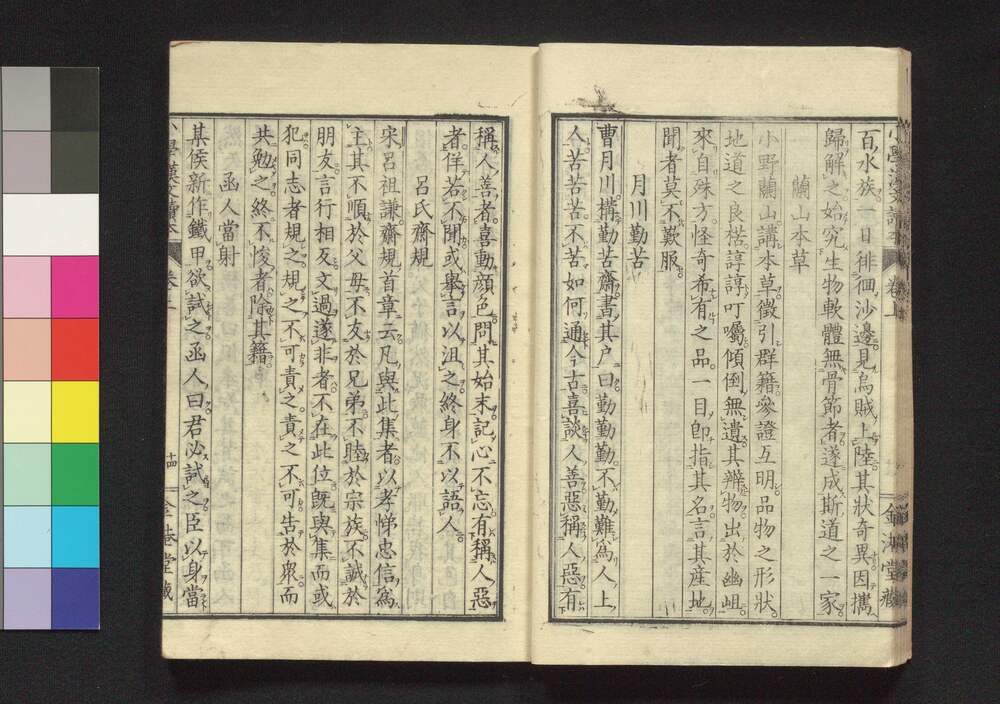 百水族一日徘徊沙邊見烏賊上陸其狀奇異因擕
歸解之始究生物軟體無骨節者遂成斯道之一家
蘭山本草
小野蘭山講本草徵引群籍參證互明品物之形狀
地道之良楛諄諄叮囑傾倒無遺其辨物出於幽岨
來自殊方怪奇希有之品一目卽指其名言其産地
聞者莫不歎服
月川勤苦
曹月川構勤苦齋書其户曰勤勤勤不勤難爲人上
人苦苦苦不苦如何通今古喜談人善惡稱人惡有
稱人善者喜動顔色問其始末記心不忘有稱人惡
者佯若不聞或舉言以沮之終身不以語人
呂氏齋規
宋呂祖謙齋規首章云凡與此集者以孝悌忠信爲
主其不順於父母不友於兄弟不睦於宗族不誠於
朋友言行相反文過遂非者不在此位旣與集而或
犯同志者規之規之不可責之責之不可告於衆而
共勉之終不悛者除其籍
函人當射
某侯新作鐵甲欲試之函人曰君必試之臣以身當
小學漢文讀本
卷上
十四